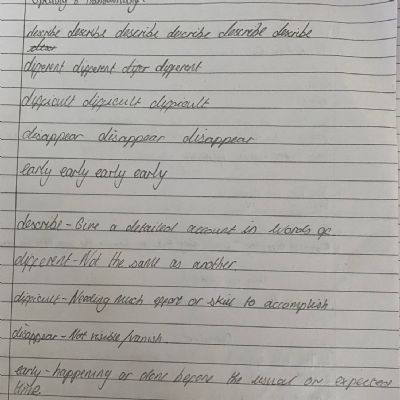 Spelling & handwriting
describe describe describe describe describe describe
different different differ different
difficult difficult difficult
disappear disappear disappear
early early early early
describe - Give a detailed account in words of
different - Not the same as another
difficult - Needing much effort or skill to accomplish.
disappear - Not visible/vanish.
early - happening or done before the usual or expected
time.